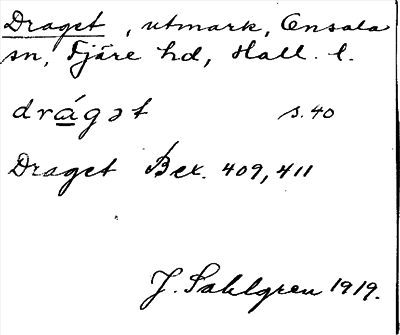 Draget, utmark, Onsala
sn, Fjäre hd, Hall. l.
drágət s. 40
Draget Bex. 409, 411
J. Sahlgren 1919.